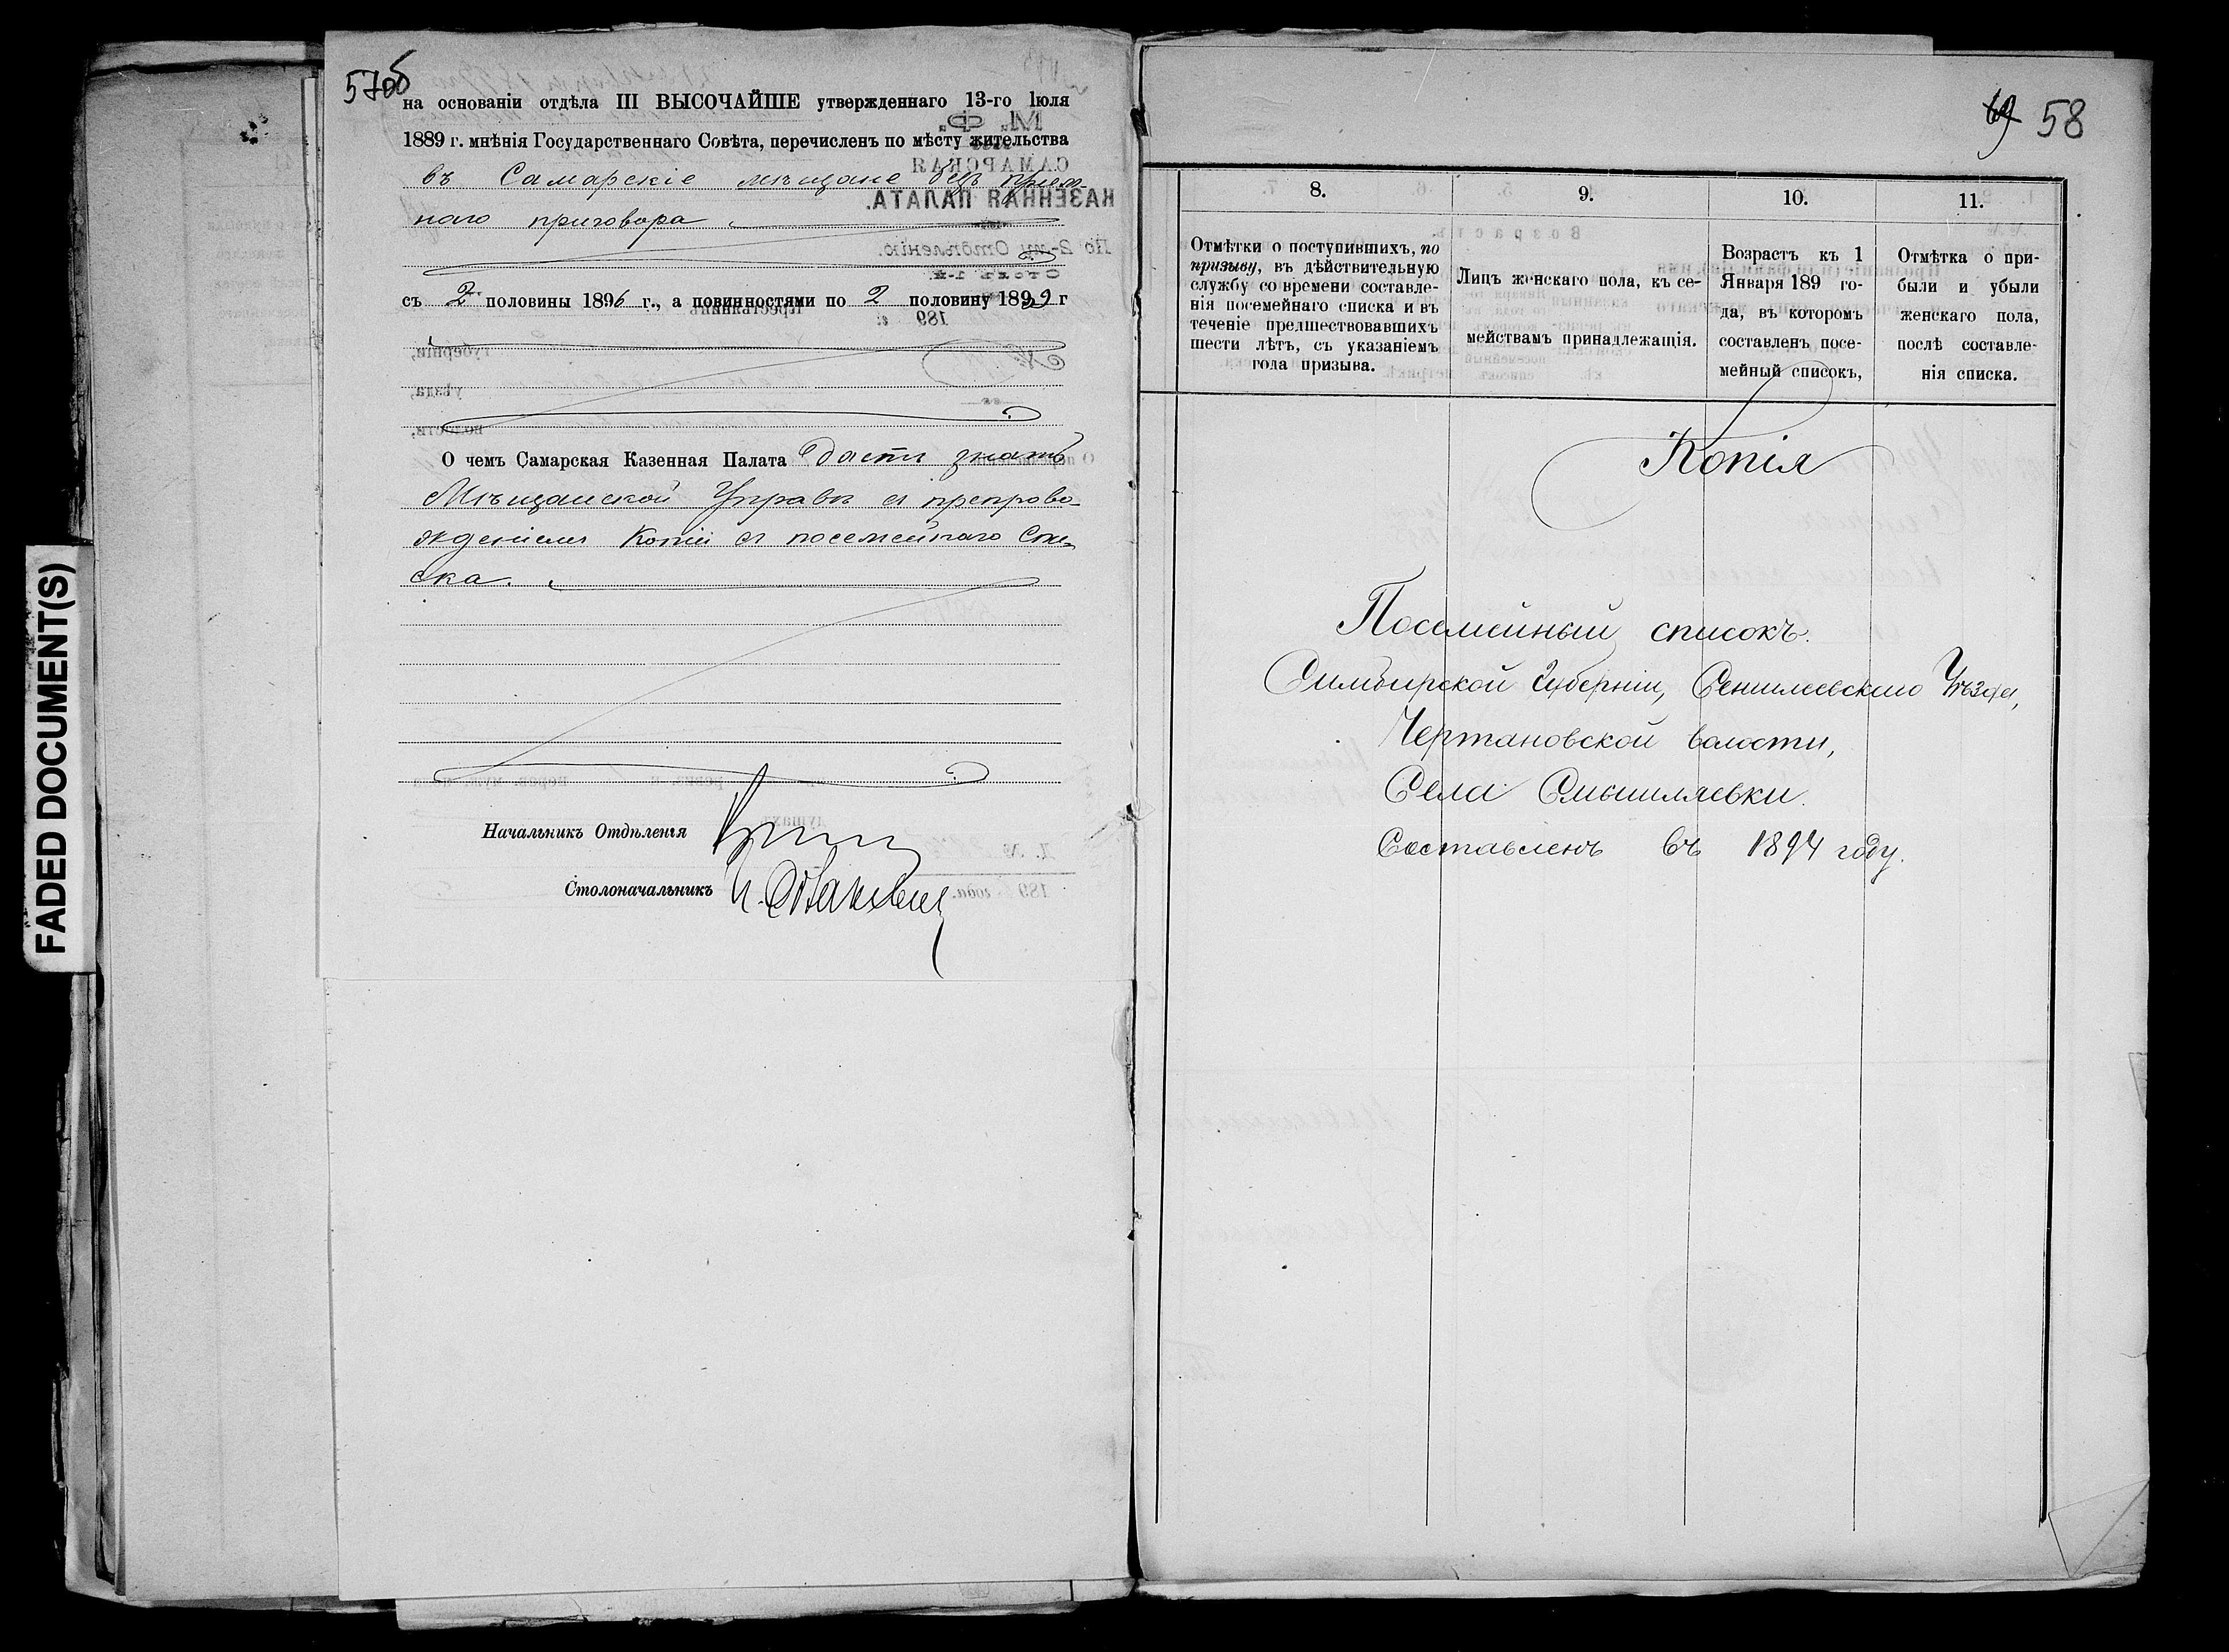 FADED DOCUMENT(S)
57об
на основаніи отдѣла III ВЫСОЧАЙШЕ утвержденнаго 13-го Іюля
1889 г. мнѣнія Государственнаго Совѣта, перечисленъ по мѣсту жительства
въ Самарскіе мѣщане безъ пріем-
наго приговора
съ 2 половины 1896 г., а повинностями по 2 половину 1899 г
О чемъ Самарская Казенная Палата даетъ знать
Мѣщанской Управѣ съ препрово-
жденіемъ копіи съ посемейнаго спи-
ска.
Начальникъ Отдѣленія
Столоначальникъ
58
8. 9. 10. 11.
Отмѣтки о поступившихъ, по
призыву, въ дѣйствительную
службу со времени составле-
нія посемейнаго списка и въ
теченіе предшествовавшихъ
шести лѣтъ, съ указаніемъ
года призыва.
Лицъ женскаго пола, къ се-
мействамъ принадлежащія.
Возрастъ къ 1
Января 189 го-
да, въ которомъ
составленъ посе-
мейный списокъ,
Отмѣтка о при-
были и убыли
женскаго пола,
послѣ составле-
нія списка.
Копія
Посемейный списокъ.
Симбирской Губерніи, Сенгилеевскаго Уѣзда,
Чертановской волости,
Села Смышляевки.
Составленъ въ 1894 году.